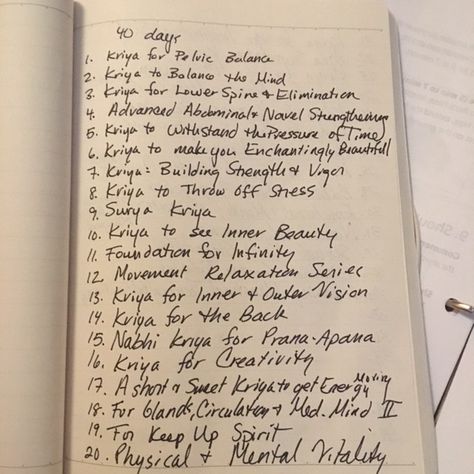 40 days
1. Kriya for Pelvic Balance
2. Kriya to Balance the Mind
3. Kriya for Lower Spine & Elimination
4. Advanced Abdominal & Navel Strengthening
5. Kriya to Withstand the Pressure of Time
6. Kriya to make you Enchantingly Beautiful
7. Kriya: Building Strength & Vigor
8. Kriya to Throw off Stress
9. Surya Kriya
10. Kriya to see Inner Beauty
11. Foundation for Infinity
12. Movement Relaxation Series
13. Kriya for Inner & Outer Vision
14. Kriya for the Back
15. Nabhi Kriya for Prana-Apana
16. Kriya for Creativity
17. A short & Sweet Kriya to get Energy Moving
18. For Glands, Circulation & Med. Mind II
19. For Keep Up Spirit
20. Physical & Mental Vitality